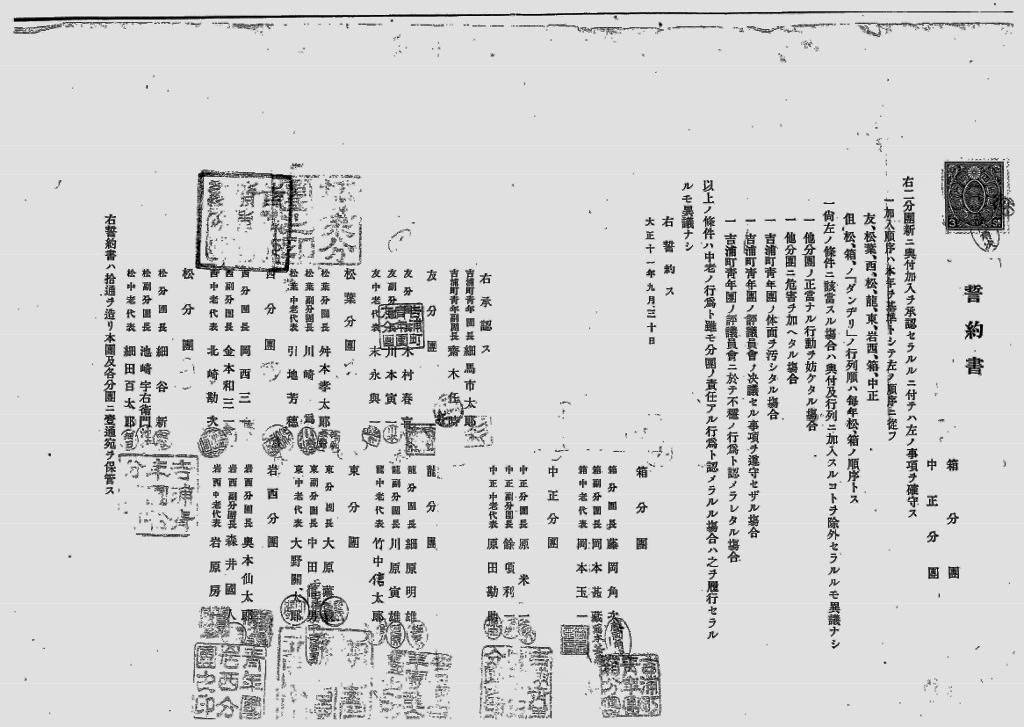 誓約書
箱分團
中正分團
右二分團新ニ輿付加入ヲ承認セラルルニ付テハ左ノ事項ヲ確守ス
一 加入順序ハ本年ヲ基準トシテ左ノ順序ニ從フ
友、松葉、西、松、龍、東、岩西、箱、中正
但 松、箱、ノ「ダンヂリ」ノ行列順ハ毎年松、箱ノ順序トス
一 尙左ノ條件ニ該當スル塲合ハ輿付及行列ニ加入スルコトヲ除外セラルルモ異議ナシ
一 他分團ノ正當ナル行動ヲ妨ケタル塲合
一 他分團ニ危害ヲ加ヘタル塲合
一 吉浦町靑年團ノ体面ヲ汚シタル塲合
一 吉浦町靑年團ノ評議員會ノ决議セル事項ヲ遵守セザル塲合
一 吉浦町靑年團ノ評議員會ニ於テ不穩ノ行爲ト認メラレタル塲合
以上ノ條件ハ中老ノ行爲ト雖モ分團ノ責任アル行爲ト認メラルル塲合ハ之ヲ履行セラル
ルモ異議ナシ
右誓約ス
大正十一年九月三十日
箱分團
箱分團長 藤岡角
箱副分團長 岡本甚藏
箱中老代表 岡本玉一
中正分團
中正分團長 原米一
中正副分團長 餘項利一
中正中老代表 原田勘助
右承認ス
吉浦町靑年團長 細馬市太郎
吉浦町靑年副團長 齋木任
友分團
友分團長 木村春
友副分團長 川本寅一
友中老代表 末永與一
龍分團
龍分團長 細原明雄
龍副分團長 川原寅雄
龍中老代表 竹中信太郎
松葉分團
松葉分團長 舛本孝太郎
松葉副分團長 川崎爲
松葉中老代表 引地芳穗
東分團
東分團長 大原
東副分團長 中田
東中老代表 大野關太郎
西分團
西分團長 岡西三一
西副分團長 金本和三一
西中老代表 北崎勘次
岩西分團
岩西分團長 奥本仙太郎
岩西副分團長 森井國人
岩西中老代表 岩原房一
松分團
松分團長 細谷新
松副分團長 池崎宇右衛門
松中老代表 細田百太郎
右誓約書ハ拾通ヲ造リ本團及各分團ニ壹通宛ヲ保管ス